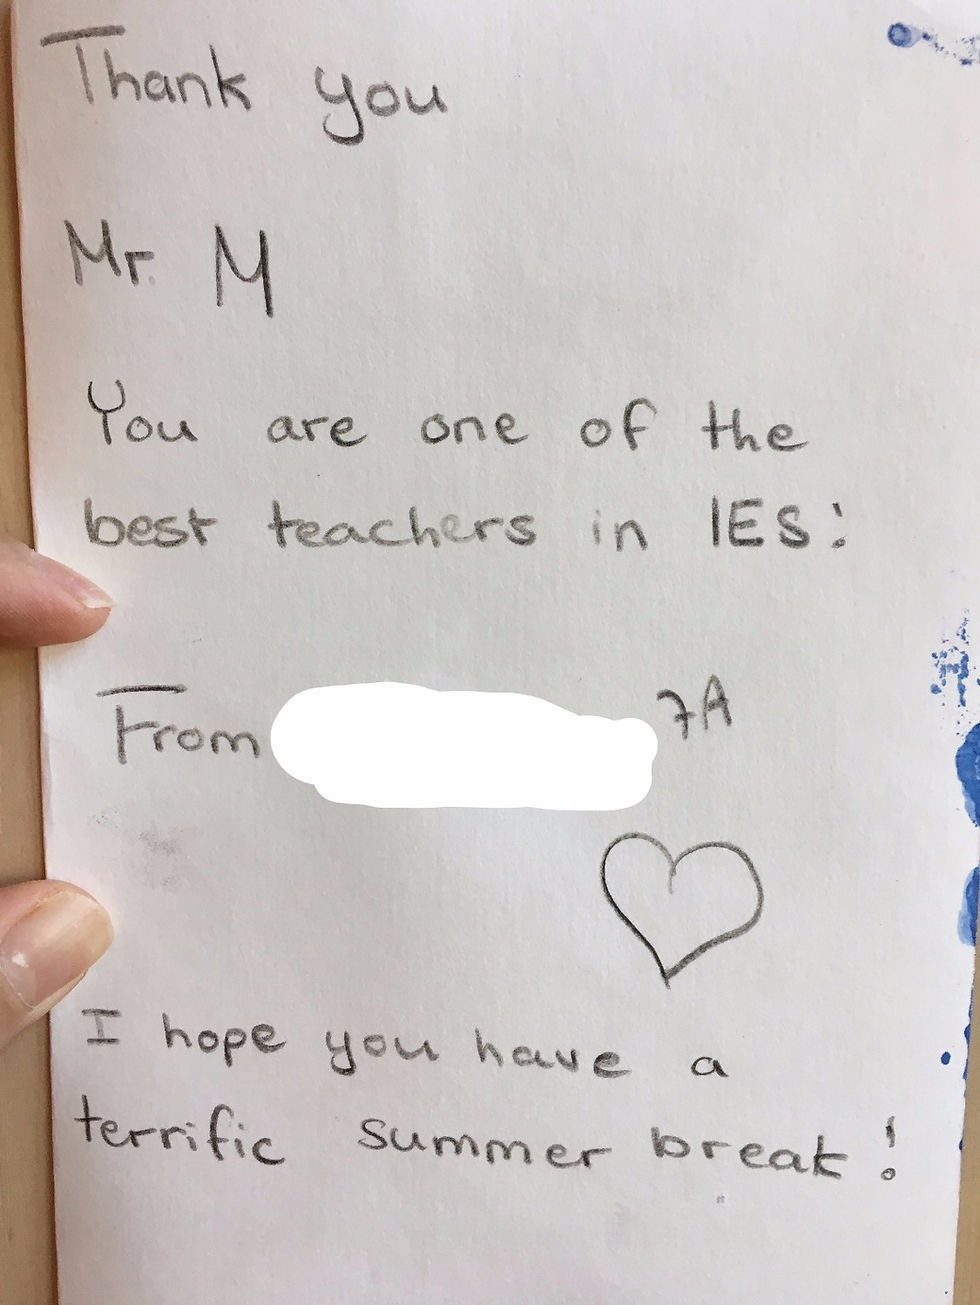 Thank you
Mr. M
You are one of the
best teachers in IES!
From 7A
I hope you have a
terrific summer break!